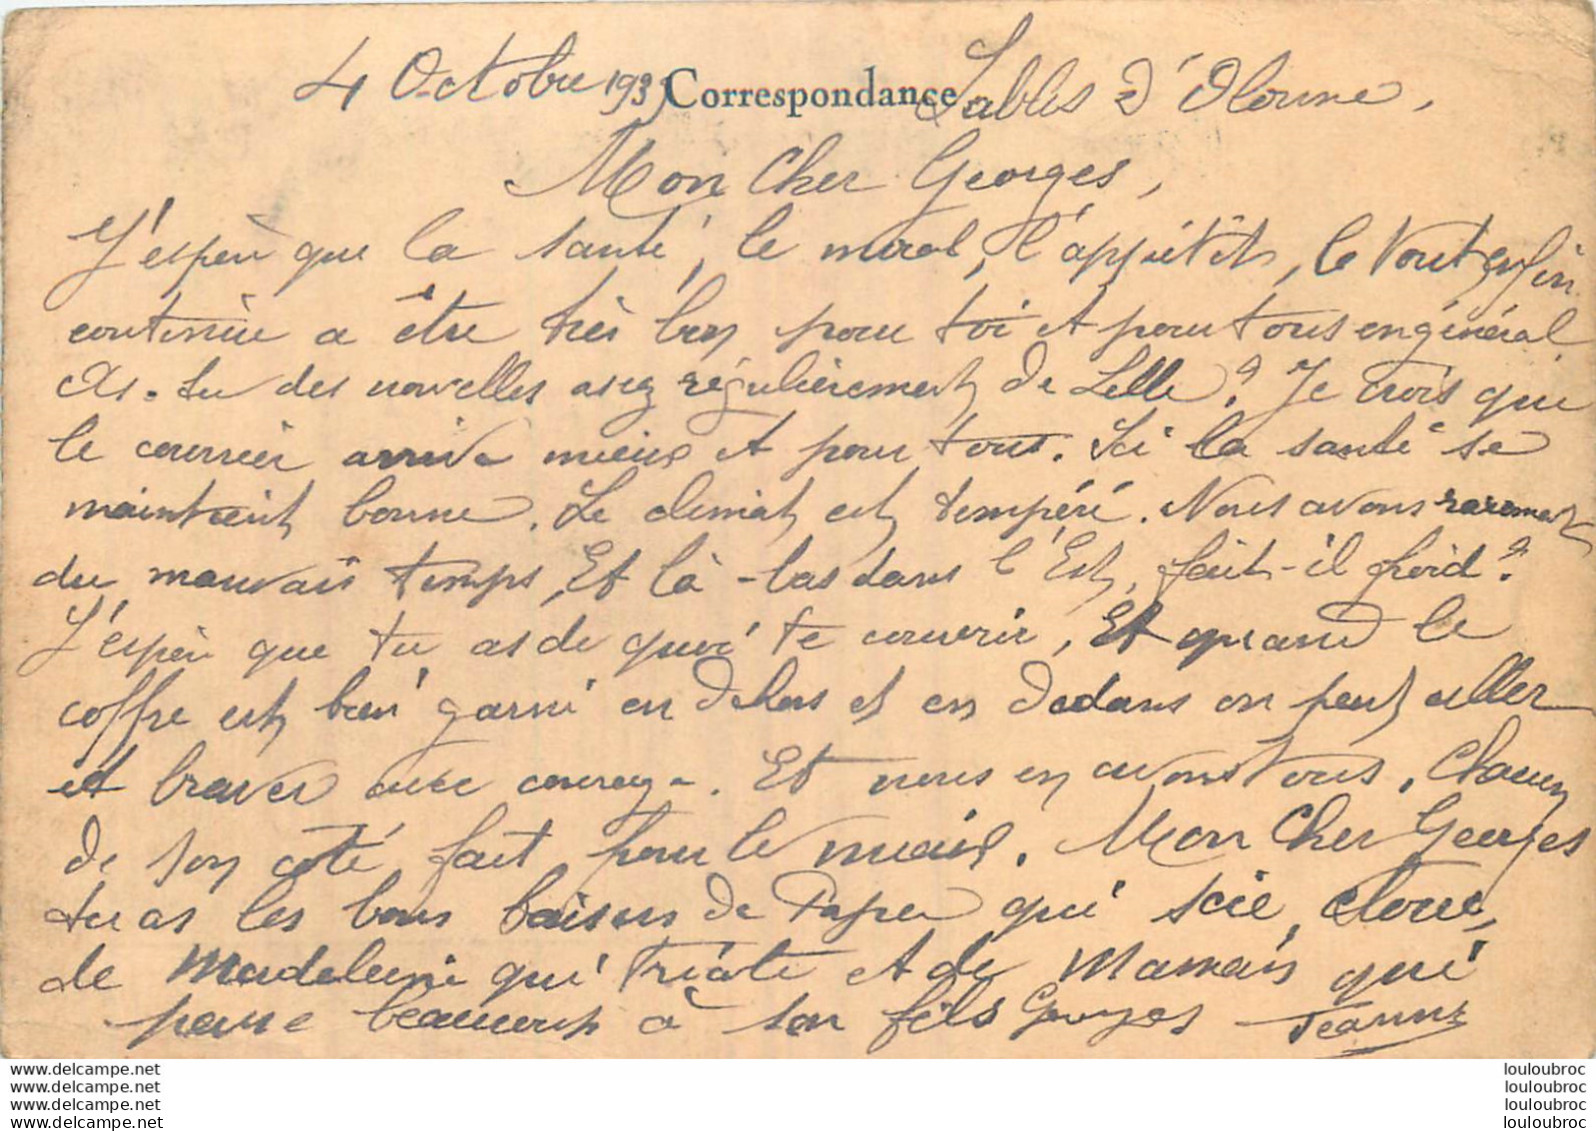 4 Octobre 1939 Correspondance Sables d'Olonne,
Mon Cher Georges,
J'espère que la santé, le moral, l'appétit, le tout enfin
continue a être très bon pour toi et pour tous en général.
As-tu des nouvelles assez régulièrement de Lille? Je crois que
le courrier arrive mieux et pour tous. Ici la santé se
maintient bonne. Le climat est tempéré. Nous avons rarement
du mauvais temps, Et là-bas dans l'Est, fait-il froid?
J'espère que tu as de quoi te couvrir, Et quand le
coffre est bien garni en dehors et en dedans on peut aller
et braver avec courage. Et nous en avons tous. Chacun
de son coté fait pour le mieux. Mon Cher Georges
tu as les bons baisers de Papa qui scie, cloue,
de Madeleine qui tricote et de Maman qui
pense beaucoup à son fils Georges Jeanne
www.delcampe.net
www.delcampe.net
www.delcampe.net
www.delcampe.net
louloubroc
louloubroc
louloubroc
louloubroc